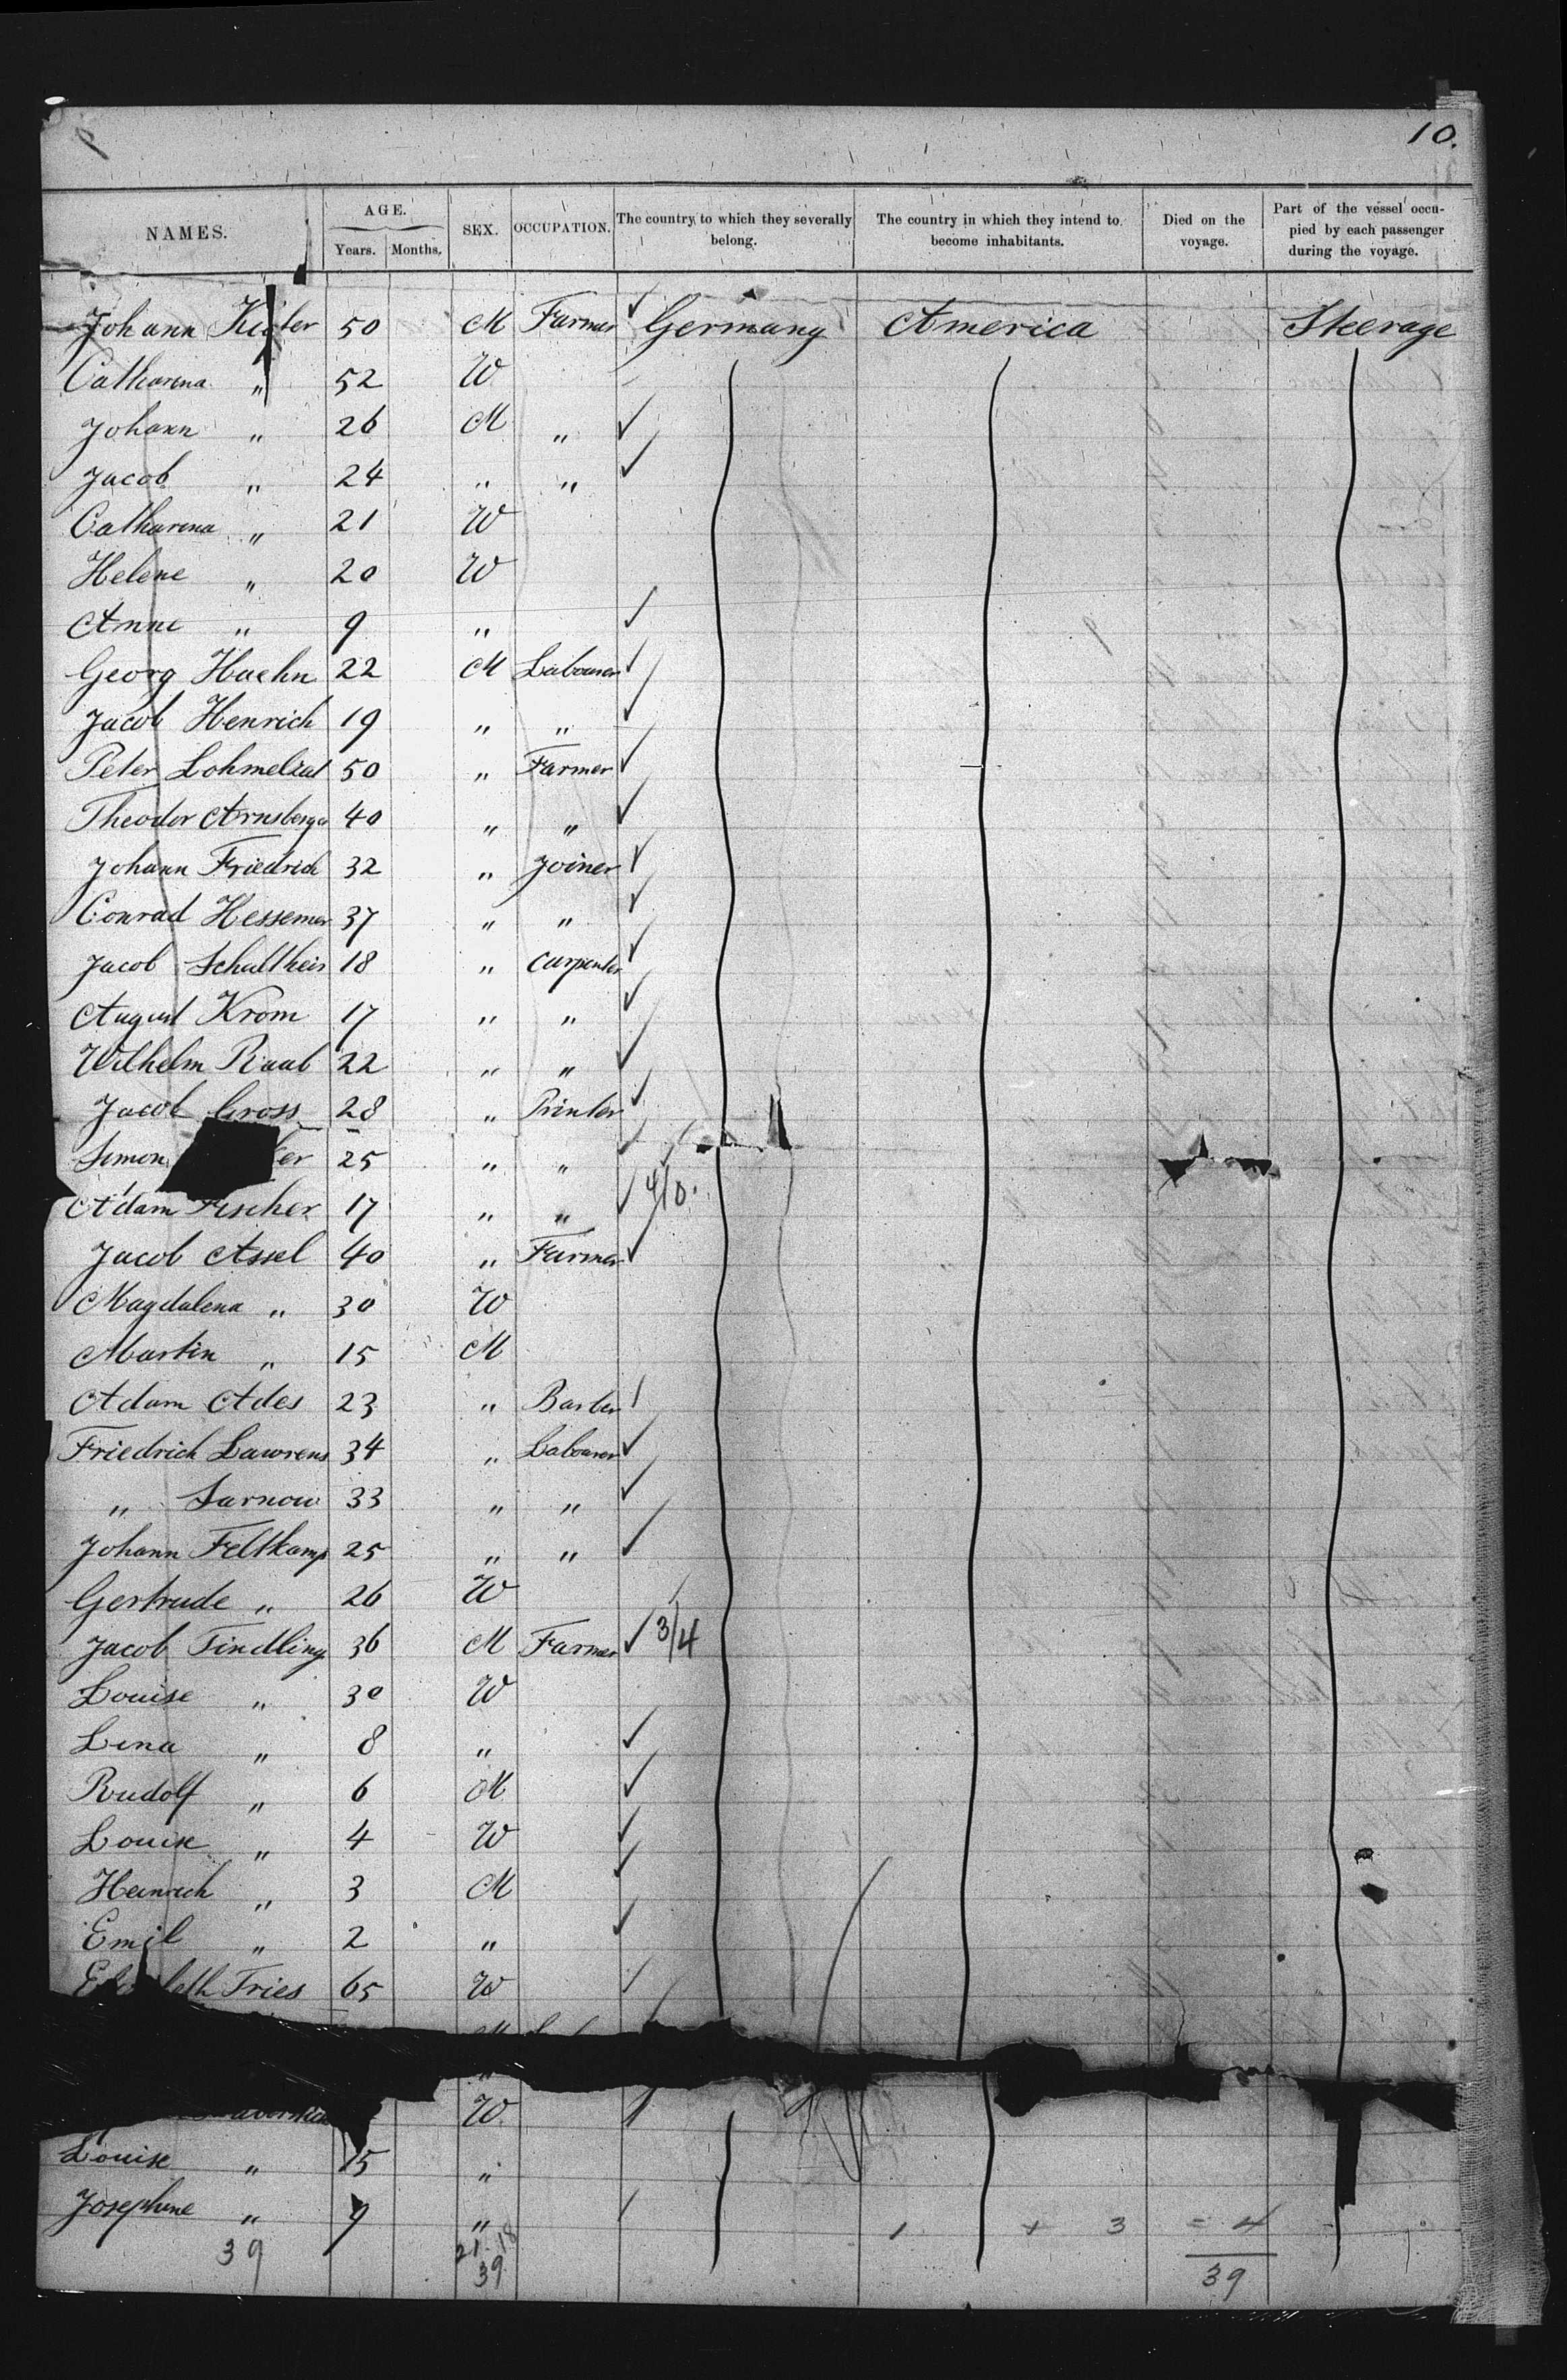 10.
NAMES. AGE. Years. Months. SEX. OCCUPATION. The country to which they severally belong. The country in which they intend to become inhabitants. Died on the voyage. Part of the vessel occupied by each passenger during the voyage.
Johann 50 M Farmer Germany America Steerage
Catharina " 52 W
Johann " 26 M "
Jacob " 24 " "
Catharina " 21 W
Helene " 20 W
Anne " 9 "
Georg Haehn 22 M Labourer
Jacob Henrich 19 " "
Peter 50 " Farmer
Theodor Arnsberger 40 " "
Johann Friedrich 32 " Joiner
Conrad Hessemer 37 " "
Jacob Schultheis 18 " Carpenter
August Krom 17 " "
Wilhelm Raab 22 " "
Jacob Gross 28 " Printer
Simon 25 " "
Adam Fischer 17 " " 4/0.
Jacob Assel 40 " Farmer
Magdalena " 30 W
Martin " 15 M
Adam Ades 23 " Barber
Friedrich Lawrens 34 " Labourer
" Sarnow 33 " "
Johann Feltkamp 25 " "
Gertrude " 26 W
Jacob Findling 36 M Farmer 3/4
Louise " 30 W
Lina " 8 "
Rudolf " 6 M
Louise " 4 W
Heinrich " 3 M
Emil " 2 "
Fries 65 W
W
Louise " 15 "
Josephine " 9 "
39 21. 18 1 + 3 = 4
39 39